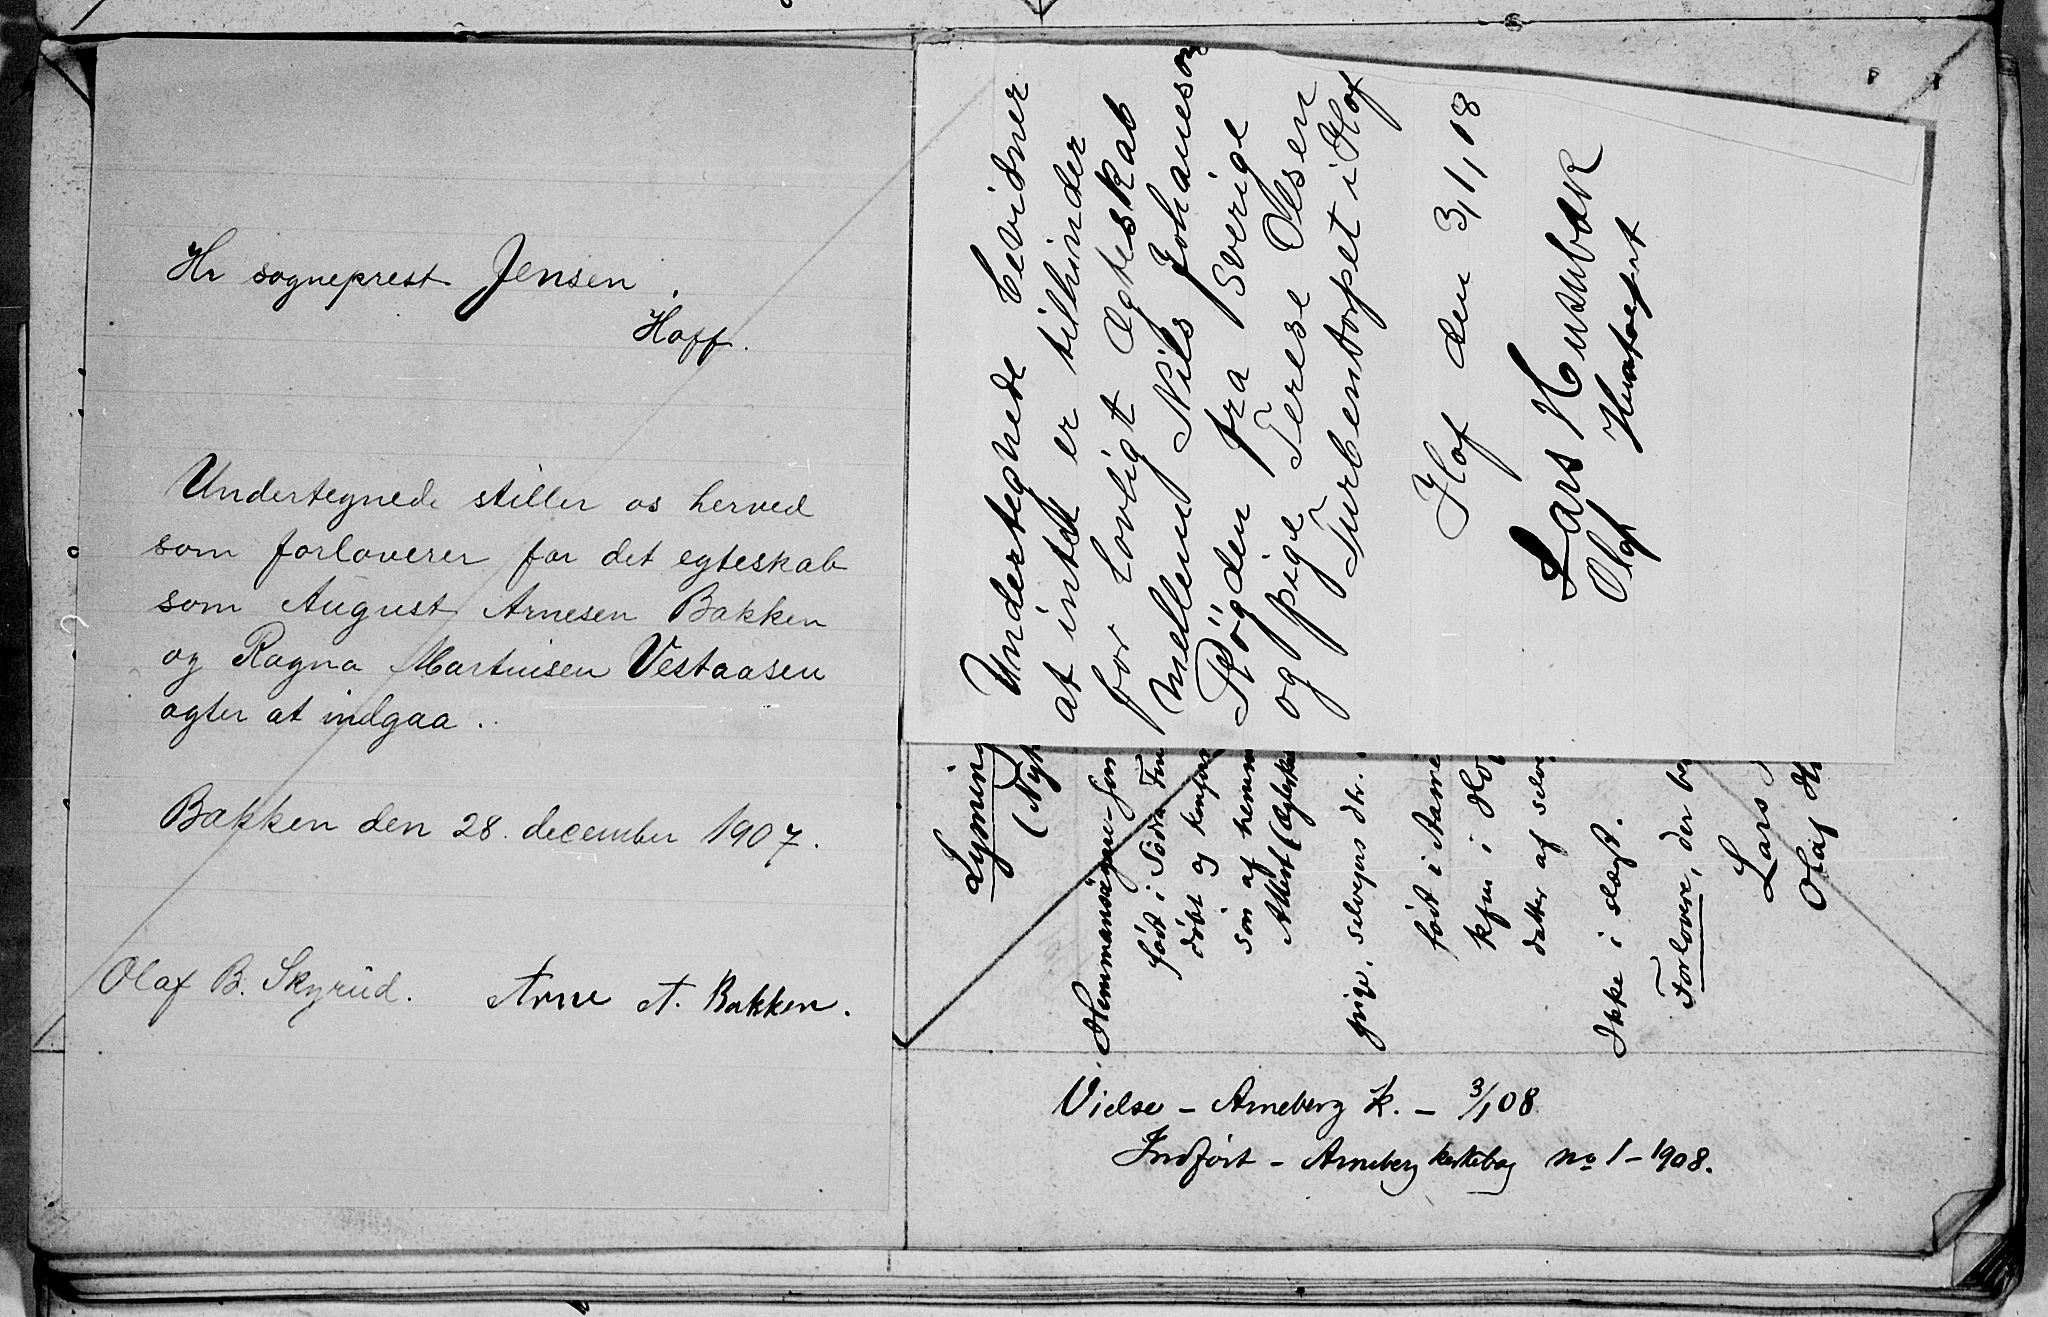 Hr sogneprest Jensen.
Hoff.
Undertegnede stiller os herved
som forloverer for det egteskab
som August Arnesen Bakken
og Ragna Martinisen Vestaasen
agter at indgaa.
Bakken den 28. december 1907.
Olaf B. Skyrud. Arne A. Bakken.
Undertegnede bevidner
at intet er tilhinder
for Lovligt Ægteskab
mellem Nils Johaneson
Rögden fra Sverige
og pige Terese Olsen
Turbentorpet i Hof
Hof den 3/1 08
Lars Husubak
Olaf
Lysning
(Nyk
Hemmansägare-son
født i Södra Fin
døbt og konfir
søn af hemm
Attest (Ægteska
pige, selveiers dtr.
født i Aasne
kfm i Ho
datter af selve
Ikke i slægt.
Forlovere, der be
Lars
Olaf H
Vielse - Arneberg K. - 3/1 08.
Indført - Arneberg kirkebog no 1 - 1908.